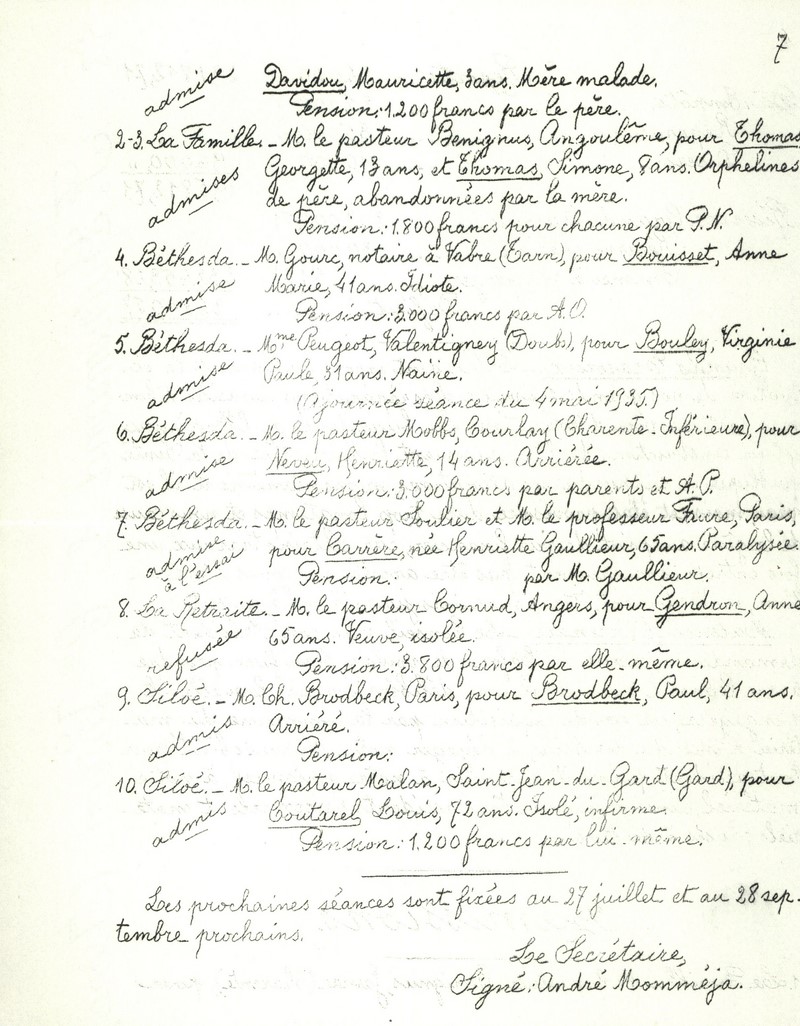 7
Davidou, Mauricette, 3 ans. Mère malade.
admise
Pension: 1.200 francs par le père.
2-3. La Famille. - M. le pasteur Benignus, Angoulême, pour Thomas
Georgette, 13 ans, et Thomas, Simone, 8 ans. Orphelines
admises
de père, abandonnées par la mère.
Pension: 1.800 francs pour chacune par P.N.
4. Béthesda. - M. Gourc, notaire à Vabre (Tarn), pour Bouisset, Anne
admise
Marie, 41 ans. Idiote.
Pension: 3.000 francs par A.O.
5. Béthesda. - Mme Peugeot, Valentigney (Doubs), pour Bouley, Virginie
admise
Paule, 31 ans. Naine.
(Ajournée séance du 4 mai 1935.)
6. Béthesda. - M. le pasteur Mobbs, Courlay (Charente-Inférieure), pour
admise
Neveu, Henriette, 14 ans. Arriérée.
Pension: 3.000 francs par parents et A.P.
7. Béthesda. - M. le pasteur Soulier et M. le professeur Faure, Paris,
admise
à l'essai
pour Carrère, née Henriette Gaullieur, 65 ans. Paralysée.
Pension: par M. Gaullieur.
8. La Retraite. - M. le pasteur Cornud, Angers, pour Gendron, Anne
65 ans. Veuve, isolée.
refusée
Pension: 3.800 francs par elle-même.
9. Siloé. - M. Ch. Brodbeck, Paris, pour Brodbeck, Paul, 41 ans.
admis
Arriéré.
Pension:
10. Siloé. - M. le pasteur Malan, Saint-Jean-du-Gard (Gard), pour
admis
Coutarel, Louis, 72 ans. Isolé, infirme.
Pension: 1.200 francs par lui-même.
Les prochaines séances sont fixées au 27 juillet et au 28 sep-
tembre prochains.
Le Secrétaire,
Signé: André Momméja.